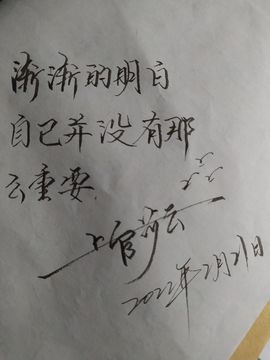 渐渐的明白
自己并没有那
么重要
上官云
2022年2月21日